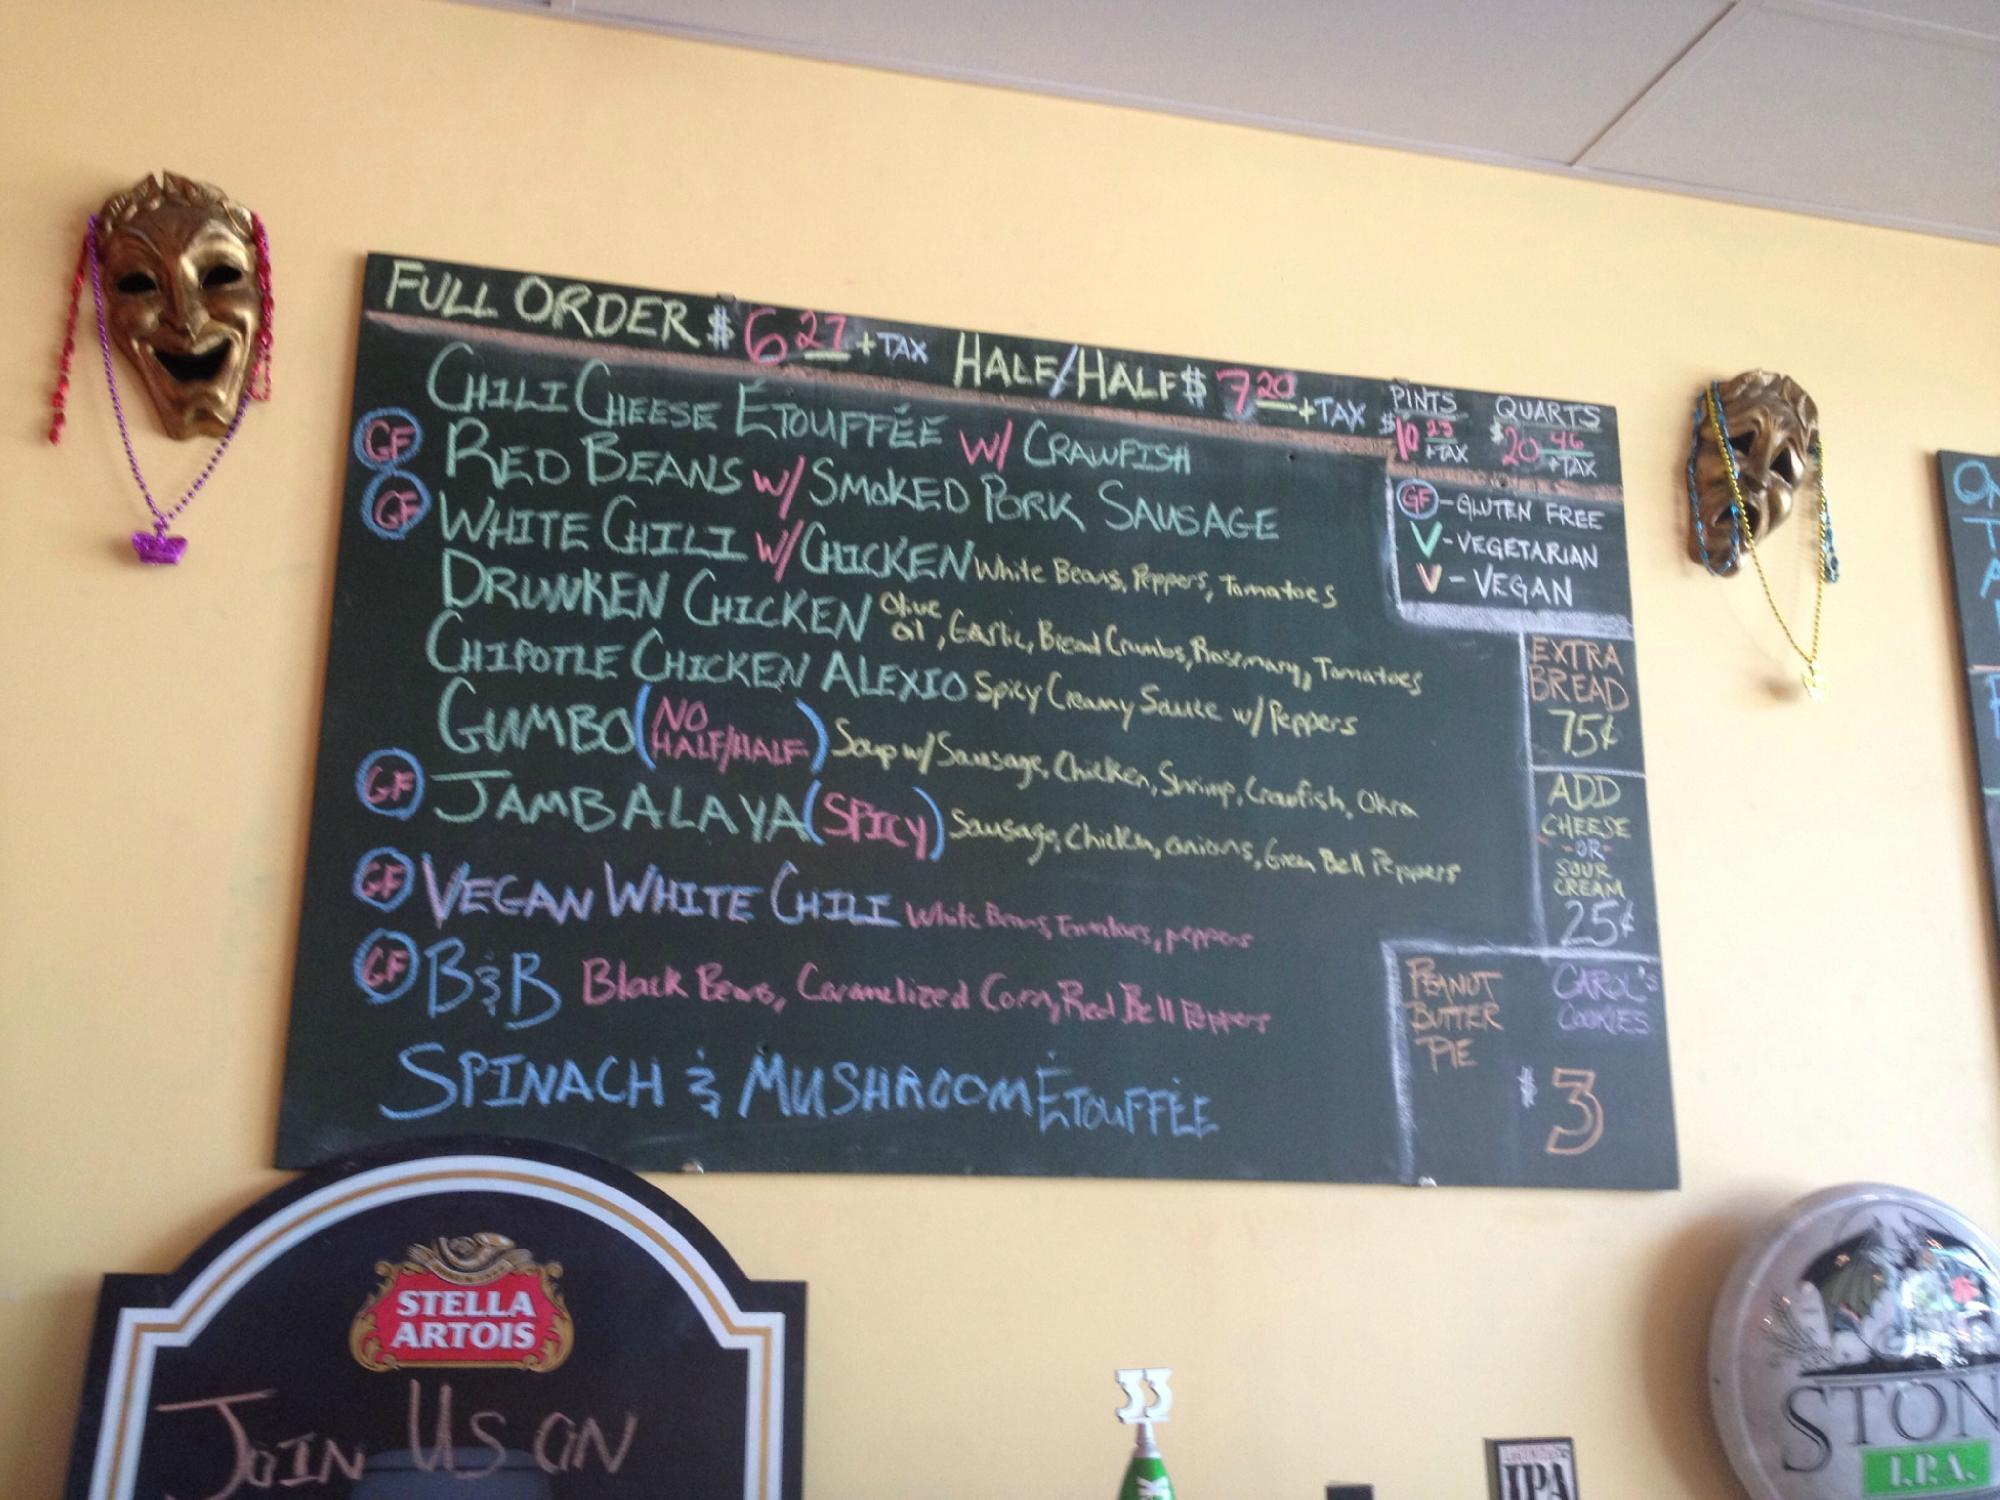 FULL ORDER $6.27 + TAX HALF/HALF $7.20 + TAX
PINTS QUARTS
$10.23 + TAX $20.46 + TAX
CHILI CHEESE ÉTOUFFÉE W/ CRAWFISH
GF RED BEANS W/ SMOKED PORK SAUSAGE
GF WHITE CHILI W/ CHICKEN White Beans, Peppers, Tomatoes
DRUNKEN CHICKEN Olive Oil, Garlic, Bread Crumbs, Rosemary, Tomatoes
CHIPOTLE CHICKEN ALEXIO Spicy Creamy Sauce w/ Peppers
GUMBO (NO HALF/HALF) Soup w/ Sausage, Chicken, Shrimp, Crawfish, Okra
GF JAMBALAYA (SPICY) Sausage, Chicken, onions, Green Bell Peppers
GF VEGAN WHITE CHILI White Beans, Tomatoes, peppers
GF B & B Black Beans, Caramelized Corn, Red Bell Peppers
SPINACH & MUSHROOM ÉTOUFFÉE
GF - GLUTEN FREE
V - VEGETARIAN
V - VEGAN
EXTRA
BREAD
75¢
ADD
CHEESE
-OR-
SOUR
CREAM
25¢
PEANUT
BUTTER
PIE
CAROL'S
COOKIES
$3
STELLA
ARTOIS
JOIN US ON
33
IPA
STON
I.P.A.